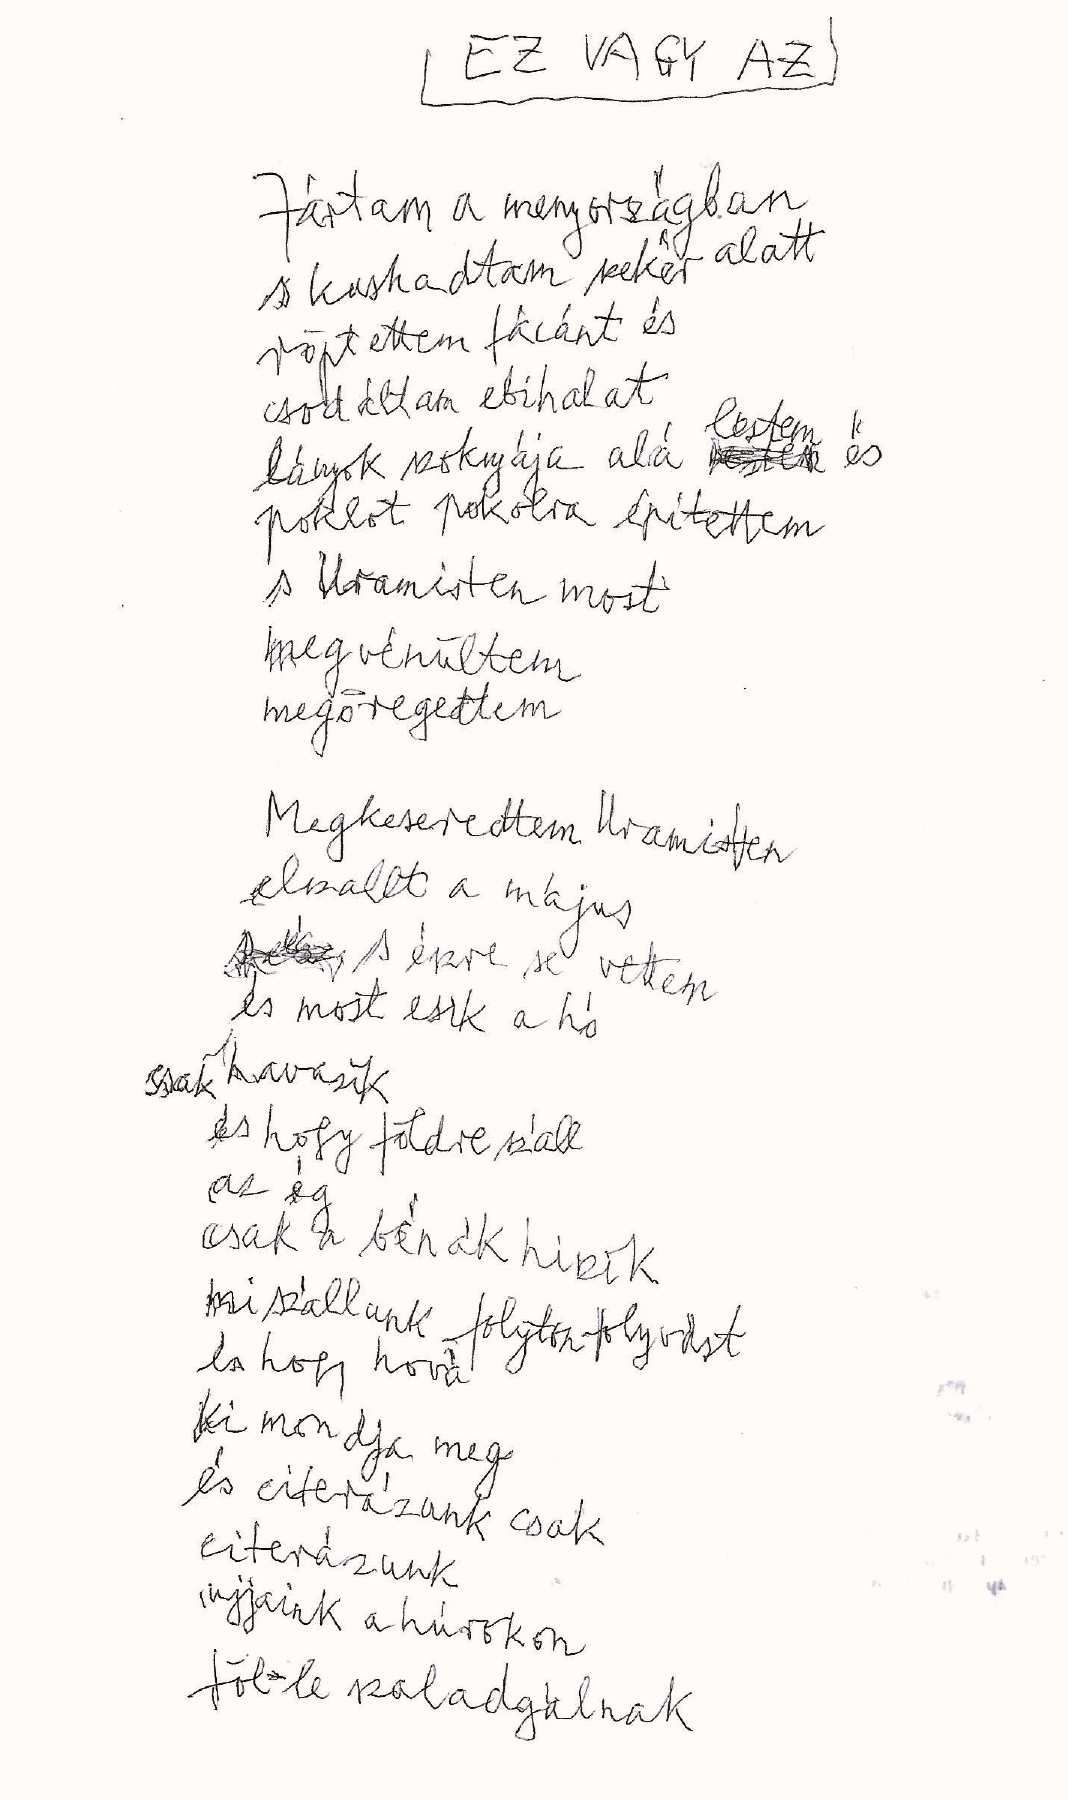 EZ VAGY AZ
Jártam a menyországban
s kushadtam szekér alatt
röptettem fácánt és
csodáltam ebihalat
lányok szoknyája alá lestem és
poklot pokolra építettem
s Uramisten most
megvénültem
megöregedtem
Megkeseredtem Uramisten
elszállt a május
s észre se vettem
és most esik a hó
csak havazik
és hogy földre száll
az ég
csak a bénák hiszik
mi szállunk folyton-folyvást
és hogy hová
ki mondja meg
és citerázunk csak
citerázunk
ujjaink a húrokon
föl-le szaladgálnak